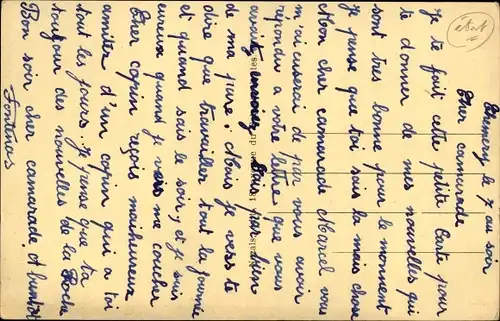 le 7 au soir
Cher camarade
Je te fait cette petite Carte pour
te donner de mes nouvelles qui
sont tres bonne pour le moment
je pense que toi sois la mais chose
Mon cher camarade Marcel vous
m'acuserai de pas vous avoir
répondu a votre lettre que vous
aviez envoiez
de ma pure. Nous je vers te
dire que travailler tout la journée
et quand sais le soir, et je suis
eureux quand je vers me coucher
Cher copin reçois maiheureux
amitez d'un copin qui a toi
tout les jours. Je panse que tu
toujour des nouvelles de la Roche
Bon soir cher camarade, et bientot